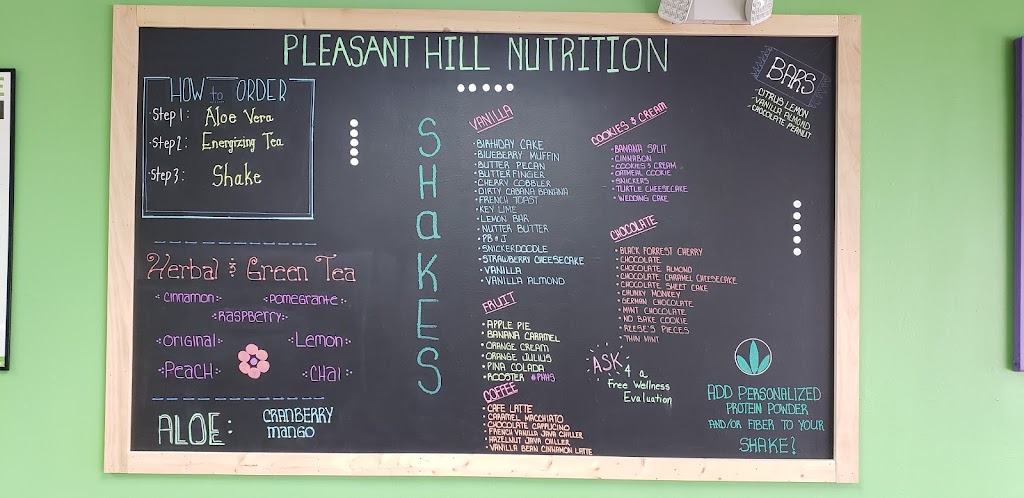 PLEASANT HILL NUTRITION
HOW to ORDER
Step 1: Aloe Vera
Step 2: Energizing Tea
Step 3: Shake
Herbal & Green Tea
Cinnamon
Pomegrante
Raspberry
Original
Lemon
Peach
Chai
ALOE:
CRANBERRY
MANGO
SHaKES
VANILLA
• BIRTHDAY CAKE
• BLUEBERRY MUFFIN
• BUTTER PECAN
• BUTTERFINGER
• CHERRY COBBLER
• DIRTY CABANA BANANA
• FRENCH TOAST
• KEY LIME
• LEMON BAR
• NUTTER BUTTER
• PB & J
• SNICKERDOODLE
• STRAWBERRY CHEESECAKE
• VANILLA
• VANILLA ALMOND
FRUIT
• APPLE PIE
• BANANA CARAMEL
• ORANGE CREAM
• ORANGE JULIUS
• PINA COLADA
• ROOSTER #PHHS
COFFEE
• CAFE LATTE
• CARAMEL MACCHIATO
• CHOCOLATE CAPPUCINO
• FRENCH VANILLA JAVA CHILLER
• HAZELNUT JAVA CHILLER
• VANILLA BEAN CINNAMON LATTE
COOKIES & CREAM
• BANANA SPLIT
• CINNABON
• COOKIES & CREAM
• OATMEAL COOKIE
• SNICKERS
• TURTLE CHEESECAKE
• WEDDING CAKE
CHOCOLATE
• BLACK FORREST CHERRY
• CHOCOLATE
• CHOCOLATE ALMOND
• CHOCOLATE CARAMEL CHEESECAKE
• CHOCOLATE SHEET CAKE
• CHUNKY MONKEY
• GERMAN CHOCOLATE
• MINT CHOCOLATE
• NO BAKE COOKIE
• REESE'S PIECES
• THIN MINT
ASK 4 a
Free Wellness
Evaluation
BARS
- CITRUS LEMON
- VANILLA ALMOND
- CHOCOLATE PEANUT
ADD PERSONALIZED
PROTEIN POWDER
AND/OR FIBER TO YOUR
SHAKE!